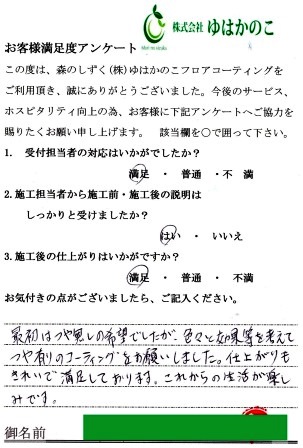 株式会社 ゆはかのこ
お客様満足度アンケート
この度は、森のしずく(株)ゆはかのこフロアコーティングを
ご利用頂き、誠にありがとうございました。今後のサービス、
ホスピタリティ向上の為、お客様に下記アンケートへご協力を
賜りたくお願い申し上げます。 該当欄を〇で囲って下さい。
1. 受付担当者の対応はいかがでしたか?
満足 ・ 普通 ・ 不 満
2.施工担当者から施工前・施工後の説明は
しっかりと受けましたか?
はい ・ いいえ
3.施工後の仕上がりはいかがですか?
満足 ・ 普通 ・ 不満
お気付きの点がございましたら、ご記入ください。
最初はつや無しの希望でしたが、色々と効果等を考えて
つや有りのコーティングをお願いしました。仕上がりも
きれいで満足しております。これからの生活が楽し
みです。
御名前